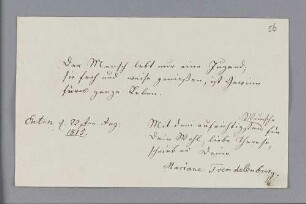 56
Der Mensch lebt nur eine Jugend,
sie froh und weise genießen, ist Gewinn
fürs ganze Leben.
Eutin d. 22ten Aug.
1815.
Mit den aufrichtigsten Wünschen für
Dein Wohl, liebe
schrieb es Deine
Mariane Trendelenburg.